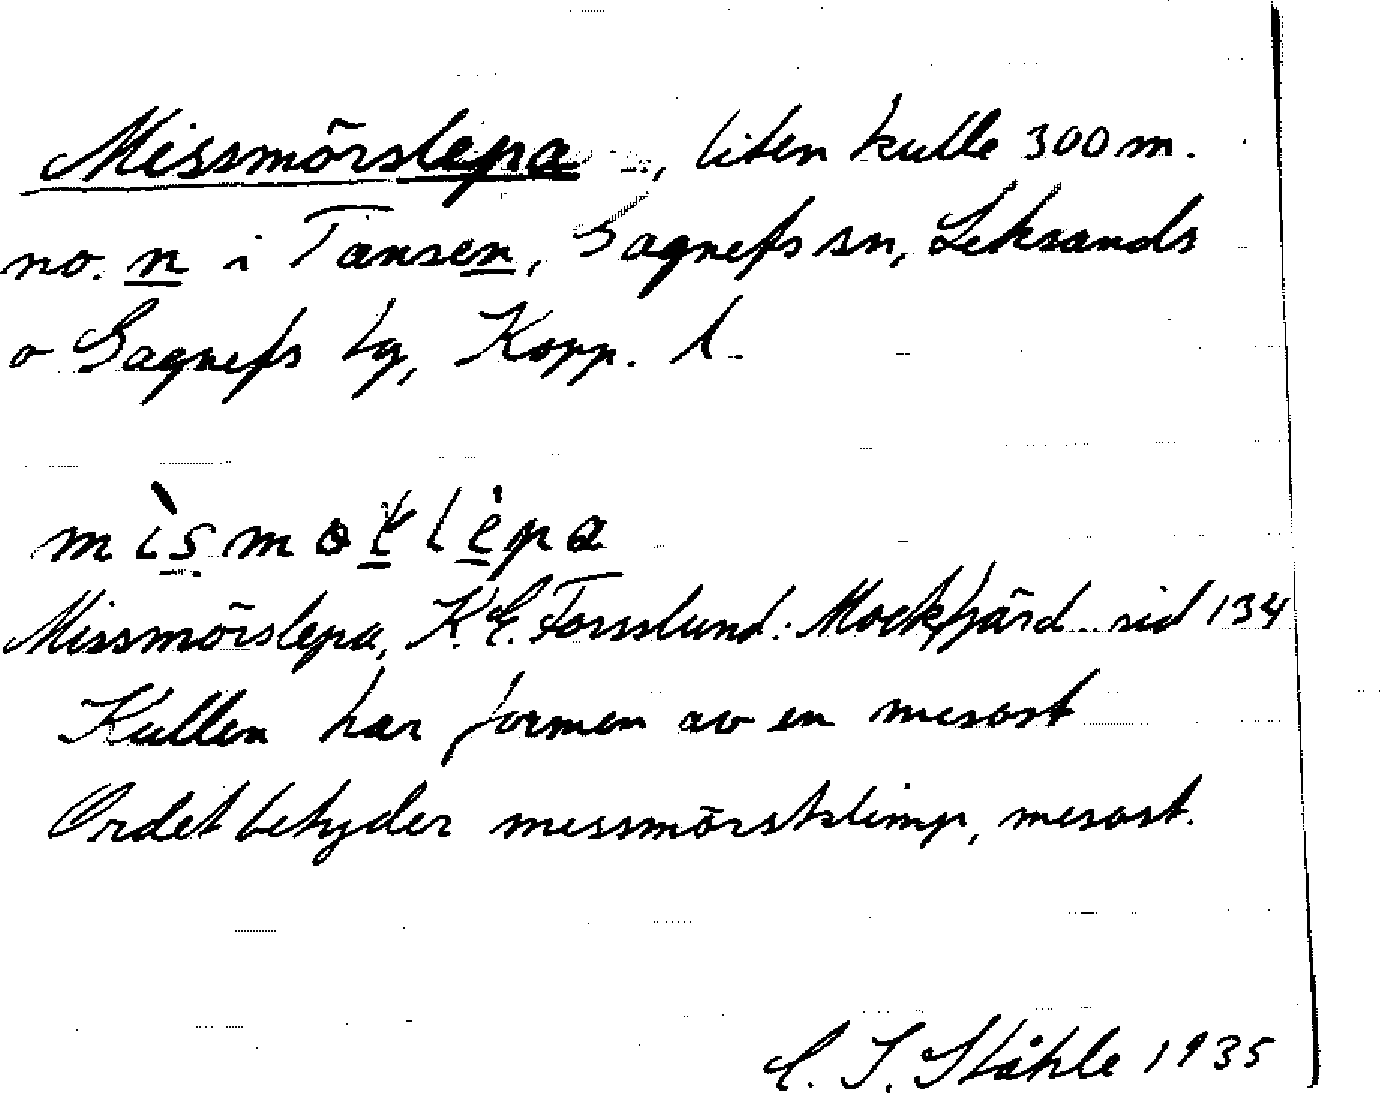 Missmörslepa, liten kulle 300 m.
no. n i Tansen, Gagnefs sn, Leksands
o Gagnefs tg, Kopp. l.
Missmörslepa, K.E. Forsslund: Mockfjärd sid 134
Kullen har formen av en mesost
Ordet betyder messmörsklimp, mesost.
C. I. Ståhle 1935